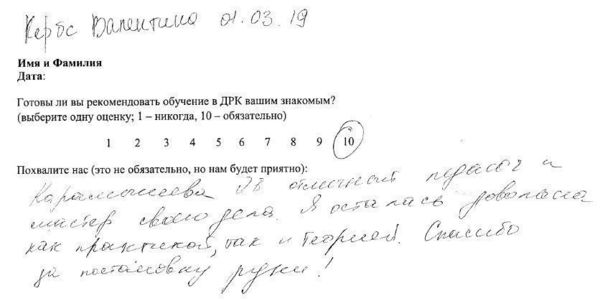 Кербс Валентина 01.03.19
Имя и Фамилия
Дата:
Готовы ли вы рекомендовать обучение в ДРК вашим знакомым?
(выберите одну оценку; 1 – никогда, 10 – обязательно)
1 2 3 4 5 6 7 8 9 10
Похвалите нас (это не обязательно, но нам будет приятно):
Карамышева отличный педагог и
мастер своего дела. Я осталась довольна
как практикой, так и теорией. Спасибо
за постановку руки!